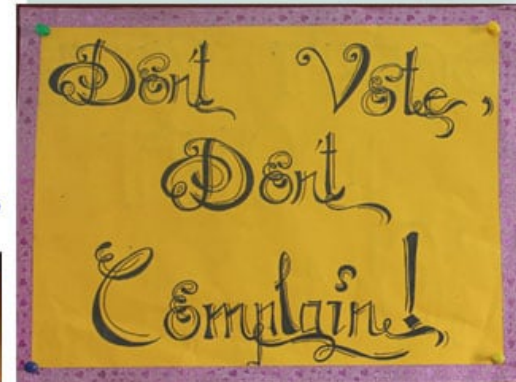 Don't Vote,
Don't
Complain!